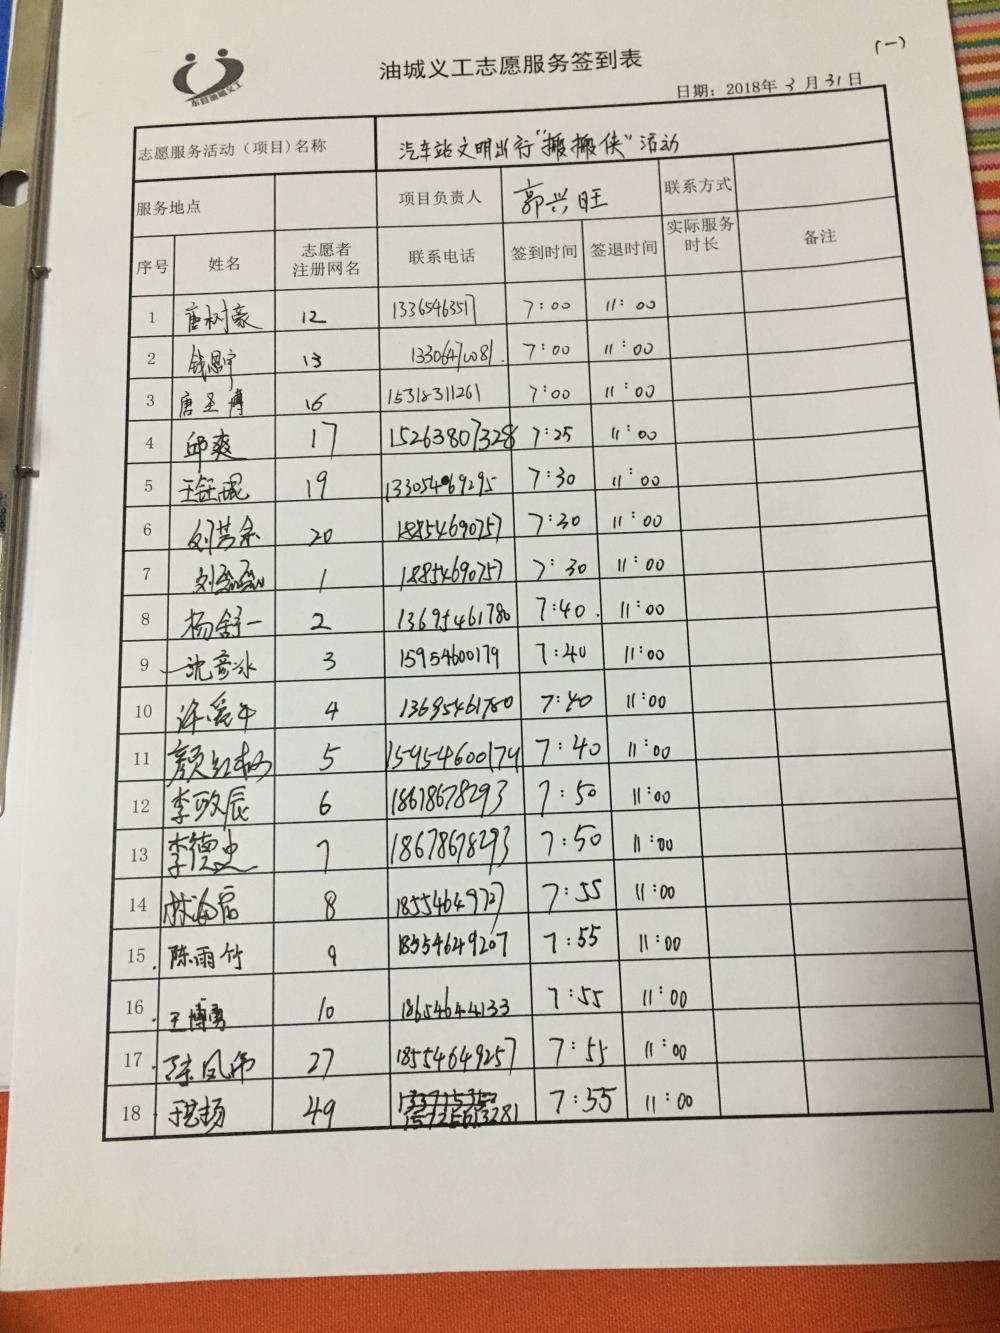 (一)
东营油城义工
油城义工志愿服务签到表
日期：2018年 3 月 31 日
志愿服务活动（项目）名称 汽车站文明出行“搬搬侠”活动
服务地点 项目负责人 郭兴旺 联系方式
序号 姓名 志愿者注册网名 联系电话 签到时间 签退时间 实际服务时长 备注
1 唐树豪 12 13365463517 7:00 11:00
2 钱恩宇 13 13306471081 7:00 11:00
3 唐圣博 16 15318311261 7:00 11:00
4 邱爽 17 15263807328 7:25 11:00
5 王钰琨 19 13305469295 7:30 11:00
6 刘芸余 20 18854690757 7:30 11:00
7 刘磊磊 1 18854690757 7:30 11:00
8 杨舒一 2 13695461780 7:40 11:00
9 沈彦冰 3 15954600179 7:40 11:00
10 4 13695461780 7:40 11:00
11 颜红梅 5 15954600179 7:40 11:00
12 李政辰 6 18678678293 7:50 11:00
13 李德忠 7 18678678293 7:50 11:00
14 林海富 8 7:55 11:00
15 陈雨竹 9 18554649207 7:55 11:00
16 王博勇 10 18654644133 7:55 11:00
17 陈凤伟 27 18554649257 7:55 11:00
18 49 7:55 11:00